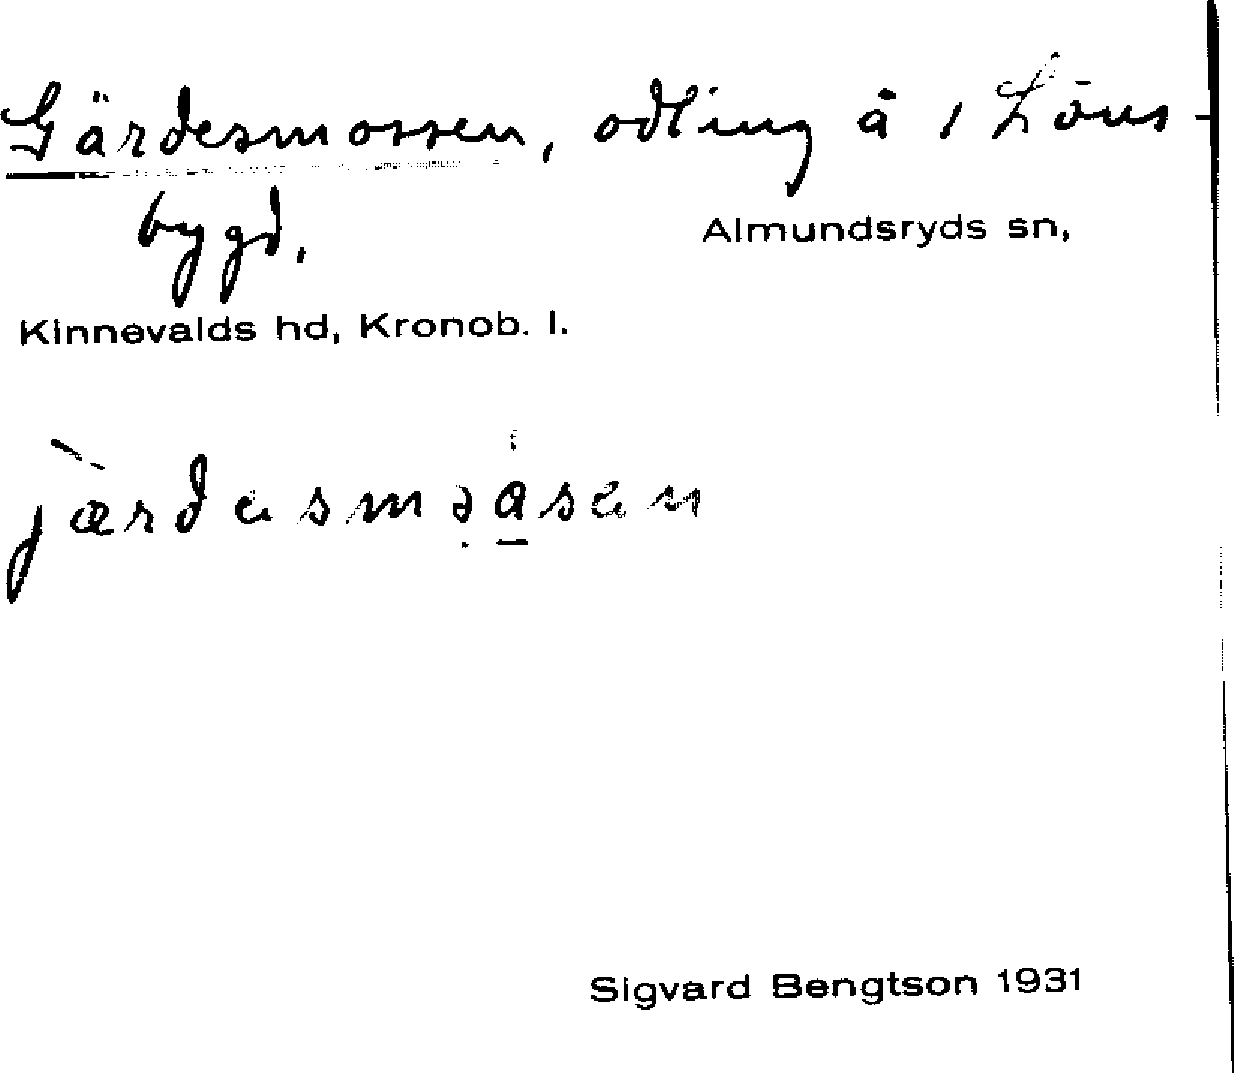 Gärdesmossen, odling å 1 Löns-
bygd.
Almundsryds sn,
Kinnevalds hd, Kronob. l.
Sigvard Bengtson 1931